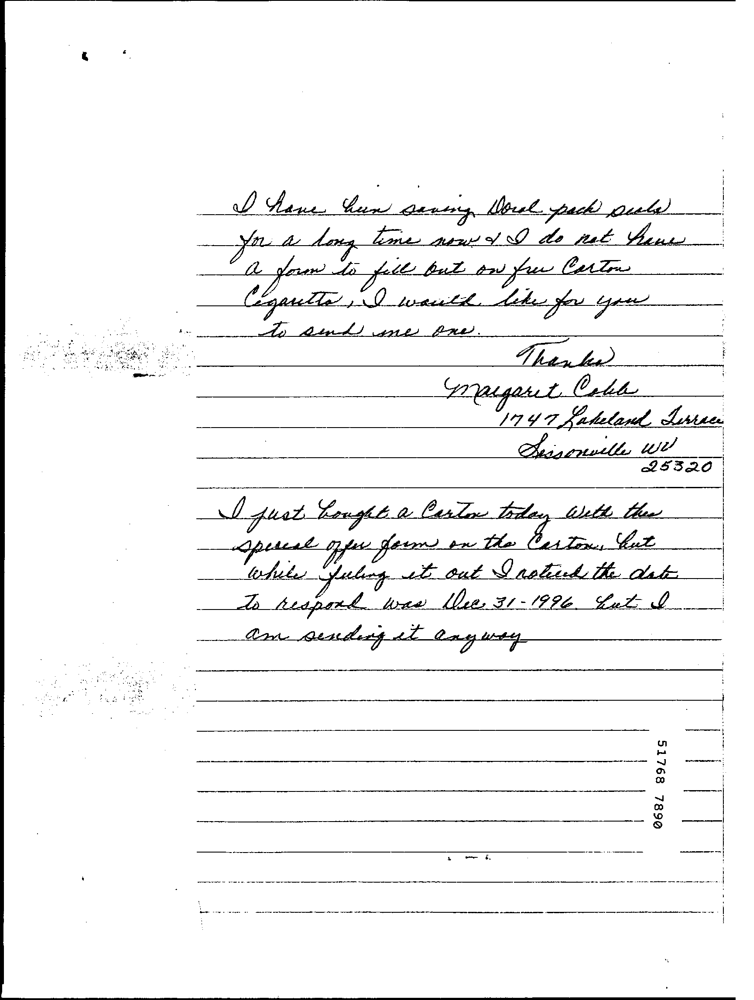 I have been saving Doral pack seals
for a long time now & I do not have
a form to fill out on free Carton
Cigaretts, I would like for you
to send me one.
Thanks
Margaret Cobb
1747 Lakeland Terrace
Sissonville WV
25320
I just bought a Carton today with the
special offer form on the Carton, but
while filing it out I noticed the date
to respond was Dec 31-1996 but I
am sending it anyway
51768 7890